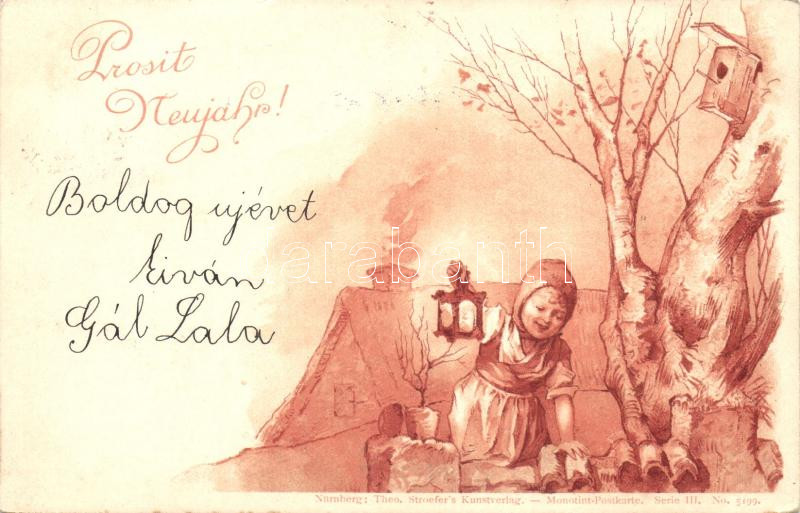 Prosit
Neujahr!
Boldog ujévet
kiván
Gál Lala
arabanth
Nürnberg: Theo. Stroefer's Kunstverlag. — Monotint-Postkarte. Serie III. No. 5199.